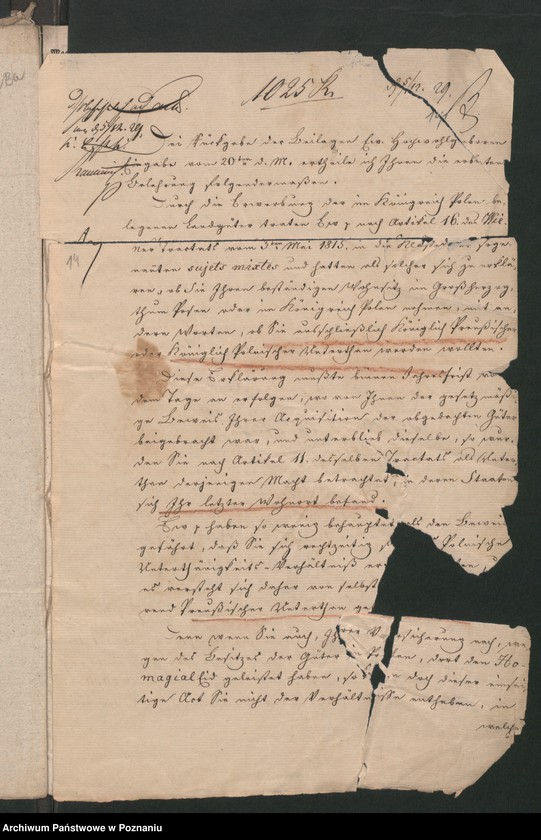 1025 Kr
Bei Rückgabe der Beilagen Ew. Hochwohlgeboren
Eingabe vom 20ten d. M. ertheile ich Ihnen die erbetene
Belehrung folgendermaßen.
Durch die Erwerbung der im Königreich Polen be-
legenen Landgüter traten Ew p nach Artikel 16. des Wie-
ner Tractats vom 3ten Mai 1815. in die Klasse der soge-
nannten sujets mixtes und hatten als solcher sich zu erklä-
ren, ob Sie Ihren beständigen Wohnsitz im Großherzog-
thum Posen oder im Königreich Polen nehmen, mit an-
dern Worten, ob Sie ausschließlich Königlich Preußischer
oder Königlich Polnischer Unterthan werden wollten.
Diese Erklärung mußte binnen Jahresfrist von
dem Tage an erfolgen, wo von Ihnen der gesetzmäßi-
ge Beweis Ihrer Acquisition der abgedachten Güter
beigebracht war, und unterblieb dieselbe, so wur-
den Sie nach Artikel 11. desselben Tractats als Unter-
than derjenigen Macht betrachtet, in deren Staaten
sich Ihr letzter Wohnort befand.
Ew p haben so wenig behauptet, als den Beweis
geführt, daß Sie sich rechtzeitig Polnische
Unterthänigkeits-Verhältniß
es versteht sich daher von selbst
Preußischer Unterthan
Denn wenn Sie auch, Ihrer Versicherung nach, we-
gen des Besitzes der Güter in Polen, dort den Ho-
magial Eid geleistet haben, so doch dieser einsei-
tige Act Sie nicht der Verhältnisse entheben, in
welche
14
Archiwum Państwowe w Poznaniu